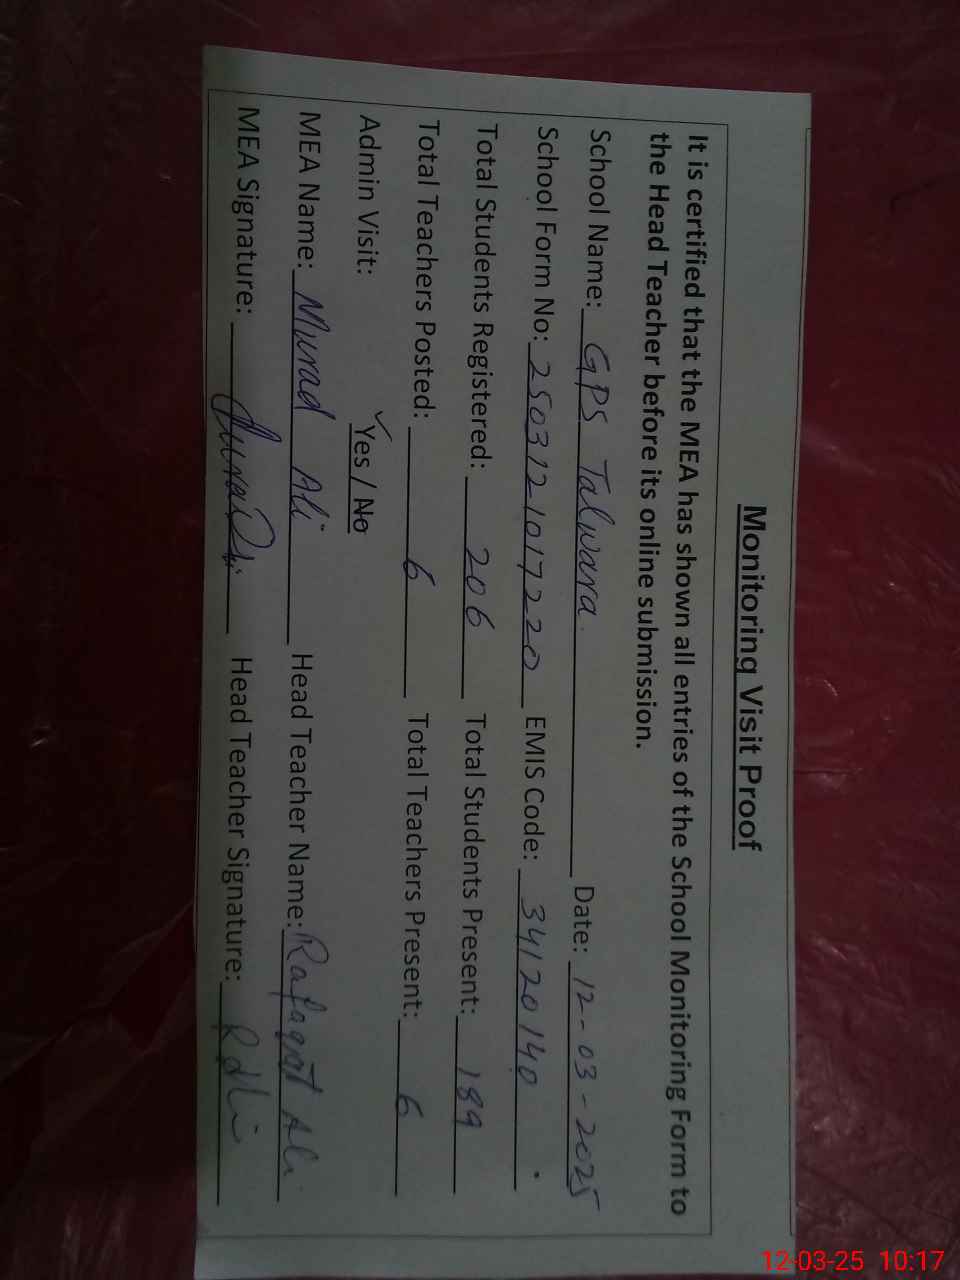 Monitoring Visit Proof
It is certified that the MEA has shown all entries of the School Monitoring Form to
the Head Teacher before its online submission.
School Name: GPS Talwara. Date: 12-03-2025
School Form No: 2503121017220 EMIS Code: 34120140
Total Students Registered: 206 Total Students Present: 189
Total Teachers Posted: 6 Total Teachers Present: 6
Admin Visit: ✓Yes / No
MEA Name: Murad Ali Head Teacher Name: Rafaqat Ali
MEA Signature: Head Teacher Signature:
12-03-25 10:17